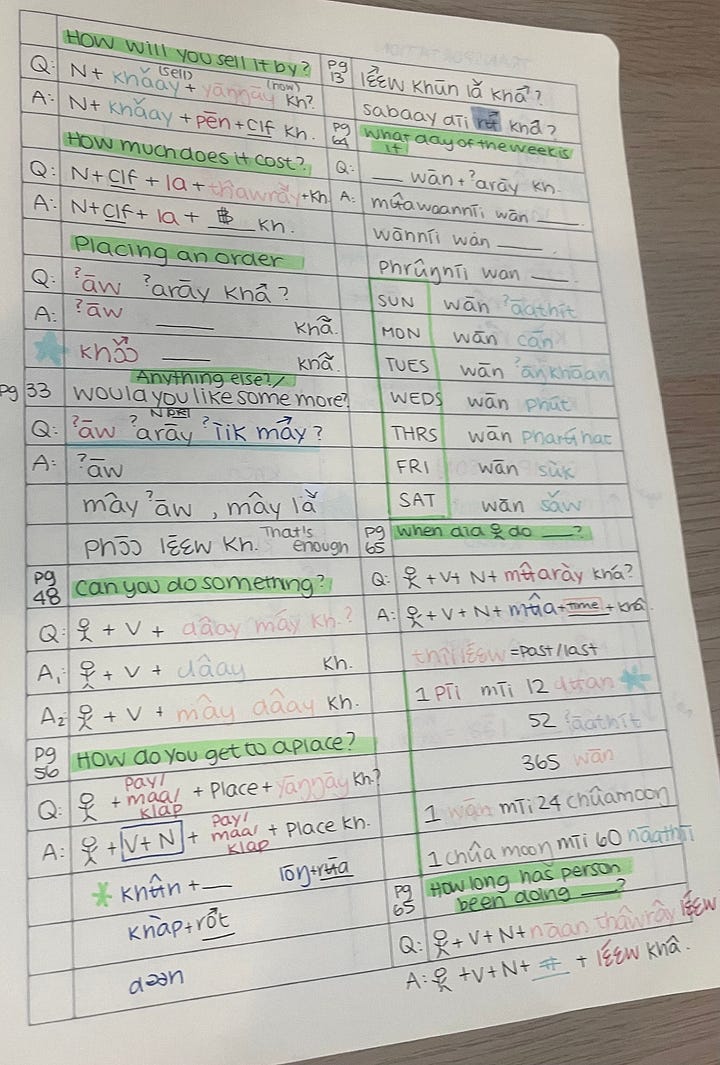 How will you sell it by?
(sell) (how)
Q: N + khǎay + yāŋŋāy kh?
A: N + khǎay + pēn + Clf kh.
How much does it cost?
Q: N + Clf + la + thâwrày + kh
A: N + Clf + la + ฿ ___ kh.
Placing an order
Q: ˀāw ˀarāy khá?
A: ˀāw ___ khâ.
khɔ̌ɔ ___ khâ.
pg 33
Anything else?/
would you like some more?
Q: ˀāw ˀarāy ˀìik máy?
A: ˀāw
mây ˀāw, mây lâ
phɔɔ lɛ́ɛw kh. That's enough
pg 48
Can you do something?
Q: 웃 + V + dâay máy kh.?
A₁: 웃 + V + dâay kh.
A₂: 웃 + V + mây dâay kh.
pg 56
How do you get to a place?
Q: 웃 + pay/ maa/ klap + Place + yāŋŋāy kh?
A: 웃 + V + N + pay/ maa/ klap + Place kh.
* khʉ̂n + __ lōŋ + rʉa
khàp + rót
dəən
pg 13
lɛ́ɛw khūn lâ khá?
sabaay dīi khá?
pg 64
What day of the week is it
Q: ___ wān + ˀarāy kh.
A: mʉ̂awaanníi wān ___.
wānníi wān ___.
phrûŋníi wan ___.
SUN wān ˀāathít
MON wān cān
TUES wān ˀāŋkhāan
WEDS wān phút
THRS wān pharʉ́hàt
FRI wān sùk
SAT wān sǎw
pg 65
When did 웃 do ___?
Q: 웃 + V + N + mʉ̂arày khá?
A: 웃 + V + N + mʉ̂a + time + khâ.
thîi lɛ́ɛw = past/last
1 pīi mīi 12 dʉan
52 ˀāathít
365 wān
1 wān mīi 24 chûamooŋ
1 chûa mooŋ mīi 60 nāathīi
pg 65
How long has person
been doing ___?
Q: 웃 + V + N + nāan thâwrày lɛ́ɛw
A: 웃 + V + N + # + lɛ́ɛw khâ.